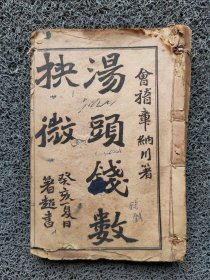 會稽章納川著
湯頭錢數
抉微
癸亥夏日
著超書